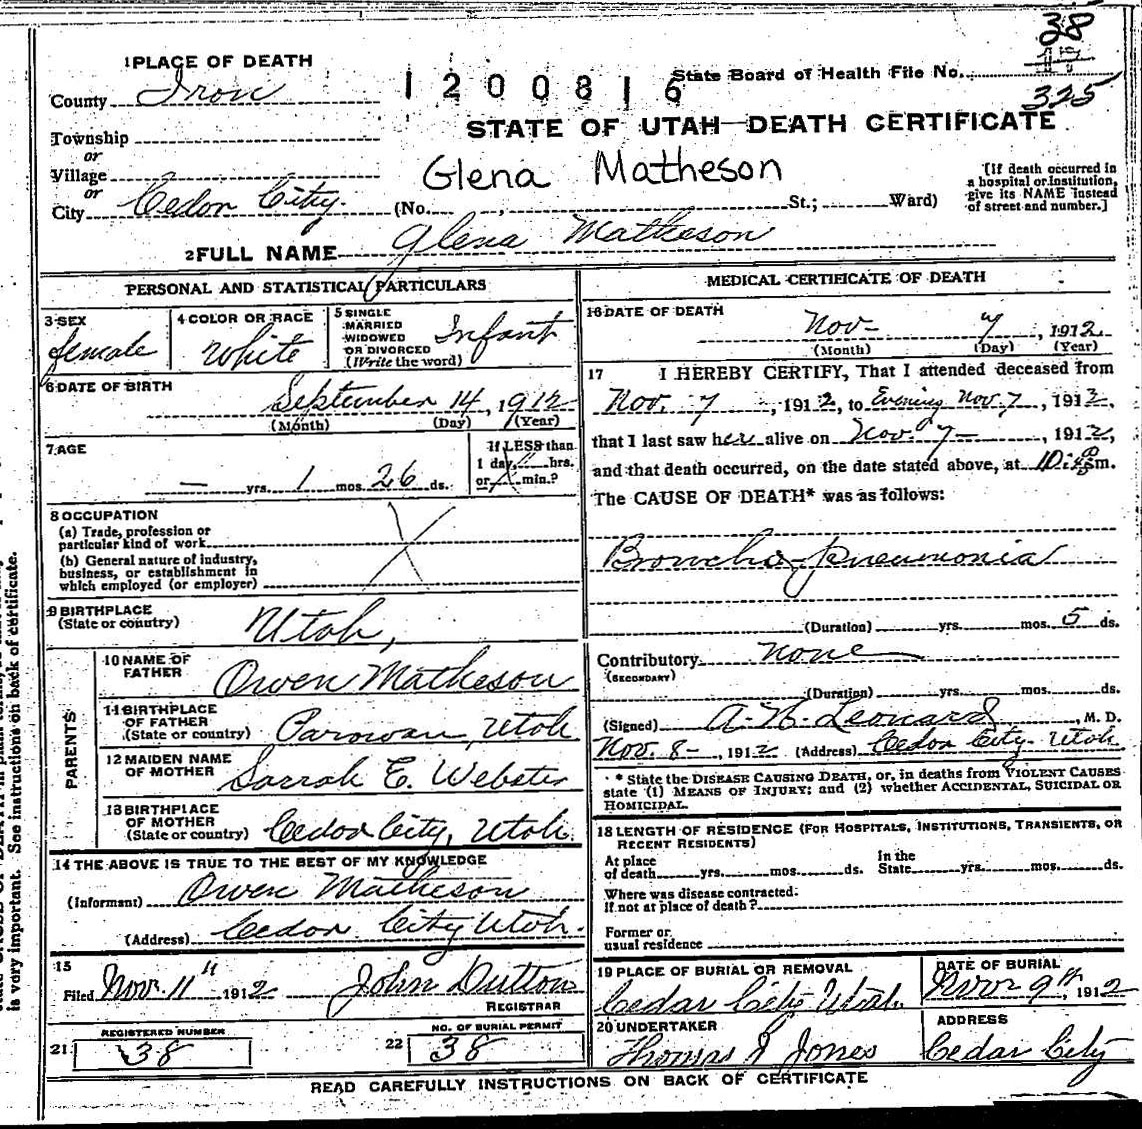 38
1 PLACE OF DEATH
1200816
State Board of Health File No.
325
County Iron
STATE OF UTAH—DEATH CERTIFICATE
Township
or
Village
or
City Cedar City.
Glena Matheson
(No. , St.; Ward)
[If death occurred in
a hospital or institution,
give its NAME instead
of street and number.]
2 FULL NAME Glena Matheson
PERSONAL AND STATISTICAL PARTICULARS
3 SEX
female
4 COLOR OR RACE
White
5 SINGLE
MARRIED
WIDOWED
OR DIVORCED
(Write the word)
Infant
6 DATE OF BIRTH
September 14, 1912
(Month) (Day) (Year)
7 AGE
— yrs. 1 mos. 26 ds.
If LESS than
1 day, hrs.
or min.?
8 OCCUPATION
(a) Trade, profession or
particular kind of work
(b) General nature of industry,
business, or establishment in
which employed (or employer)
9 BIRTHPLACE
(State or country)
Utah,
PARENTS
10 NAME OF
FATHER
Owen Matheson
11 BIRTHPLACE
OF FATHER
(State or country)
Parowan, Utah
12 MAIDEN NAME
OF MOTHER
Sarrah E. Webster
13 BIRTHPLACE
OF MOTHER
(State or country)
Cedar City, Utah.
14 THE ABOVE IS TRUE TO THE BEST OF MY KNOWLEDGE
(Informant) Owen Matheson
(Address) Cedar City Utah.
15
Filed Nov. 11" 1912 John Dutton
REGISTRAR
REGISTERED NUMBER
21 38
NO. OF BURIAL PERMIT
22 38
MEDICAL CERTIFICATE OF DEATH
16 DATE OF DEATH
Nov- 7, 1912
(Month) (Day) (Year)
17 I HEREBY CERTIFY, That I attended deceased from
Nov. 7, 1912, to Evening Nov. 7, 1912,
that I last saw her alive on Nov. 7-, 1912,
and that death occurred, on the date stated above, at m.
The CAUSE OF DEATH* was as follows:
Broncho-pneumonia
(Duration) yrs. mos. 5 ds.
Contributory None
(SECONDARY)
(Duration) yrs. mos. ds.
(Signed) A. N. Leonard, M. D.
Nov. 8-, 1912 (Address) Cedar City. Utah
* State the DISEASE CAUSING DEATH, or, in deaths from VIOLENT CAUSES
state (1) MEANS OF INJURY; and (2) whether ACCIDENTAL, SUICIDAL OR
HOMICIDAL.
18 LENGTH OF RESIDENCE (FOR HOSPITALS, INSTITUTIONS, TRANSIENTS, OR
RECENT RESIDENTS)
At place
of death yrs. mos. ds.
In the
State yrs. mos. ds.
Where was disease contracted.
If not at place of death?
Former or
usual residence
19 PLACE OF BURIAL OR REMOVAL
Cedar City Utah.
DATE OF BURIAL
Nov 9th, 1912
20 UNDERTAKER
Thomas J Jones
ADDRESS
Cedar City
READ CAREFULLY INSTRUCTIONS ON BACK OF CERTIFICATE
is very important. See instructions on back of certificate.